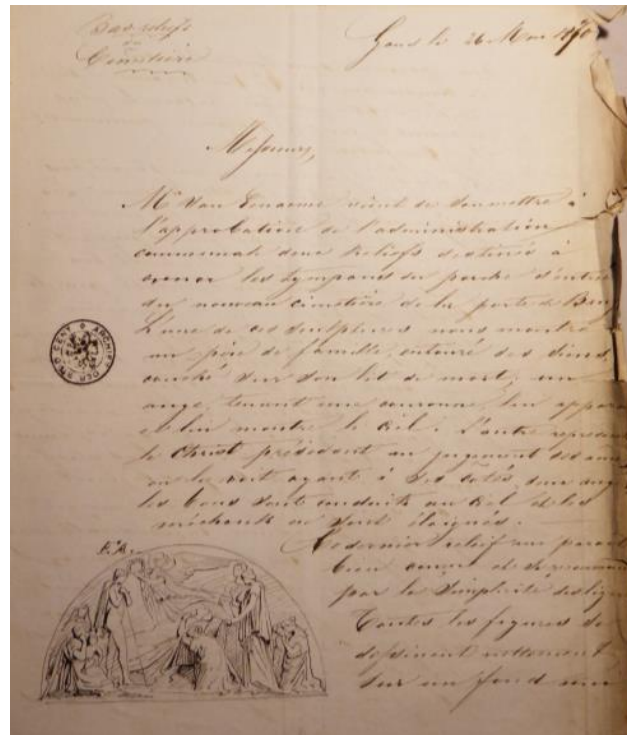 Bas-reliefs
du
Cimetière
Gand le 26 Mai 1870
Messieurs,
Mr Van vient de soumettre à
l'approbation de l'administration
communale deux reliefs destinés à
orner les tympans du porche d'entrée
du nouveau cimetière de la porte de
L'une de ces sculptures nous montre
un père de famille, entouré des siens,
couché sur son lit de mort; un
ange, tenant une couronne, lui
et lui montre le ciel. L'autre
le Christ présidant au jugement
on le voit ayant à ses côtés deux
les bons sont conduits au ciel et les
méchants en sont éloignés.
Ce dernier relief me parait
bien conçu et se
par la simplicité des
Toutes les figures se
dessinent nettement
sur un fond uni
ARCHIEF DER STAD GENT